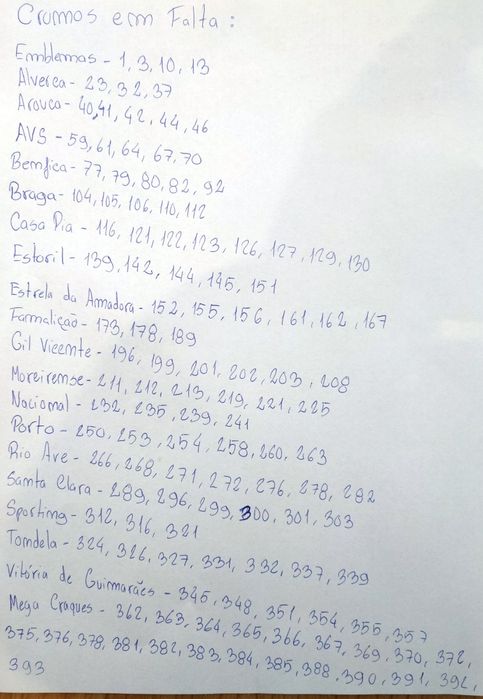 Cromos em Falta :
Emblemas - 1, 3, 10, 13
Alverca - 23, 32, 37
Arouca - 40, 41, 42, 44, 46
AVS - 59, 61, 64, 67, 70
Benfica - 77, 79, 80, 82, 92
Braga - 104, 105, 106, 110, 112
Casa Pia - 116, 121, 122, 123, 126, 127, 129, 130
Estoril - 139, 142, 144, 145, 151
Estrela da Amadora - 152, 155, 156, 161, 162, 167
Famalicão - 173, 178, 189
Gil Vicente - 196, 199, 201, 202, 203, 208
Moreirense - 211, 212, 213, 219, 221, 225
Nacional - 232, 235, 239, 241
Porto - 250, 253, 254, 258, 260, 263
Rio Ave - 266, 268, 271, 272, 276, 278, 282
Santa Clara - 289, 296, 299, 300, 301, 303
Sporting - 312, 316, 321
Tondela - 324, 326, 327, 331, 332, 337, 339
Vitória de Guimarães - 345, 348, 351, 354, 355, 357
Mega Craques - 362, 363, 364, 365, 366, 367, 369, 370, 372,
375, 376, 378, 381, 382, 383, 384, 385, 388, 390, 391, 392,
393